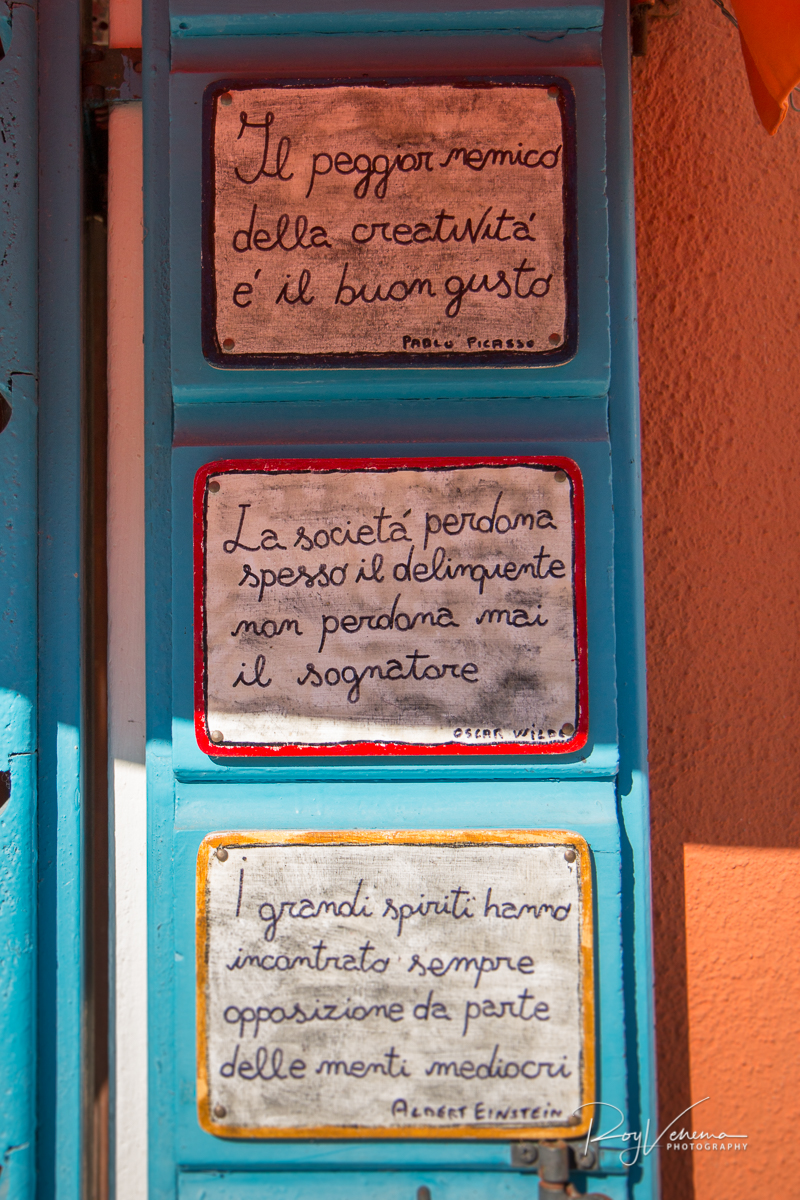 Il peggior nemico
della creatività
e' il buon gusto
PABLO PICASSO
La societá perdona
spesso il delinquente
non perdona mai
il sognatore
OSCAR WILDE
I grandi spiriti hanno
incontrato sempre
opposizione da parte
delle menti mediocri
ALBERT EINSTEIN
Roy Venema
PHOTOGRAPHY